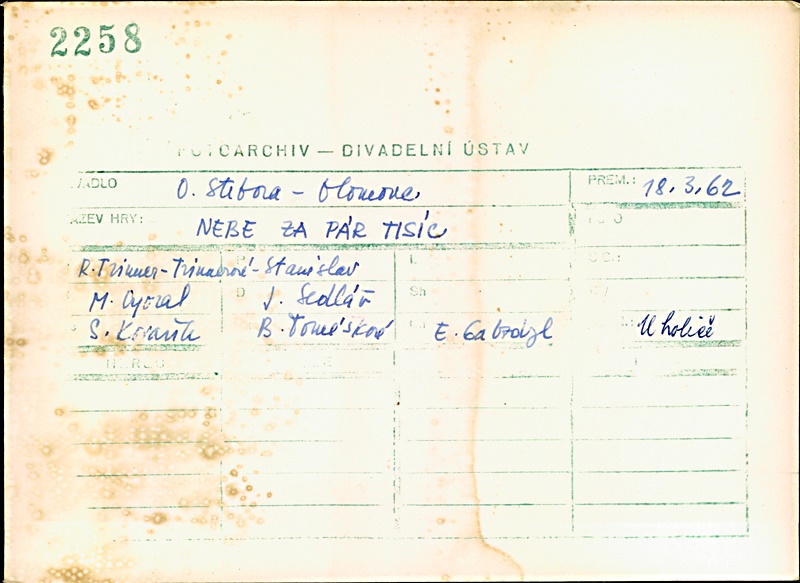 2258
FOTOARCHIV — DIVADELNÍ ÚSTAV
DIVADLO O. Stibora - Olomouc PREM.: 18.3.62
NÁZEV HRY: NEBE ZA PÁR TISÍC
R. Trinner - Trinnerové - Stanislav
M. Cyoral D J. Sedlář Sh
S. Kovařík B. Toméšková E. Gabzdyl